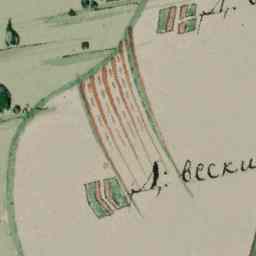 Д:
Д: вески